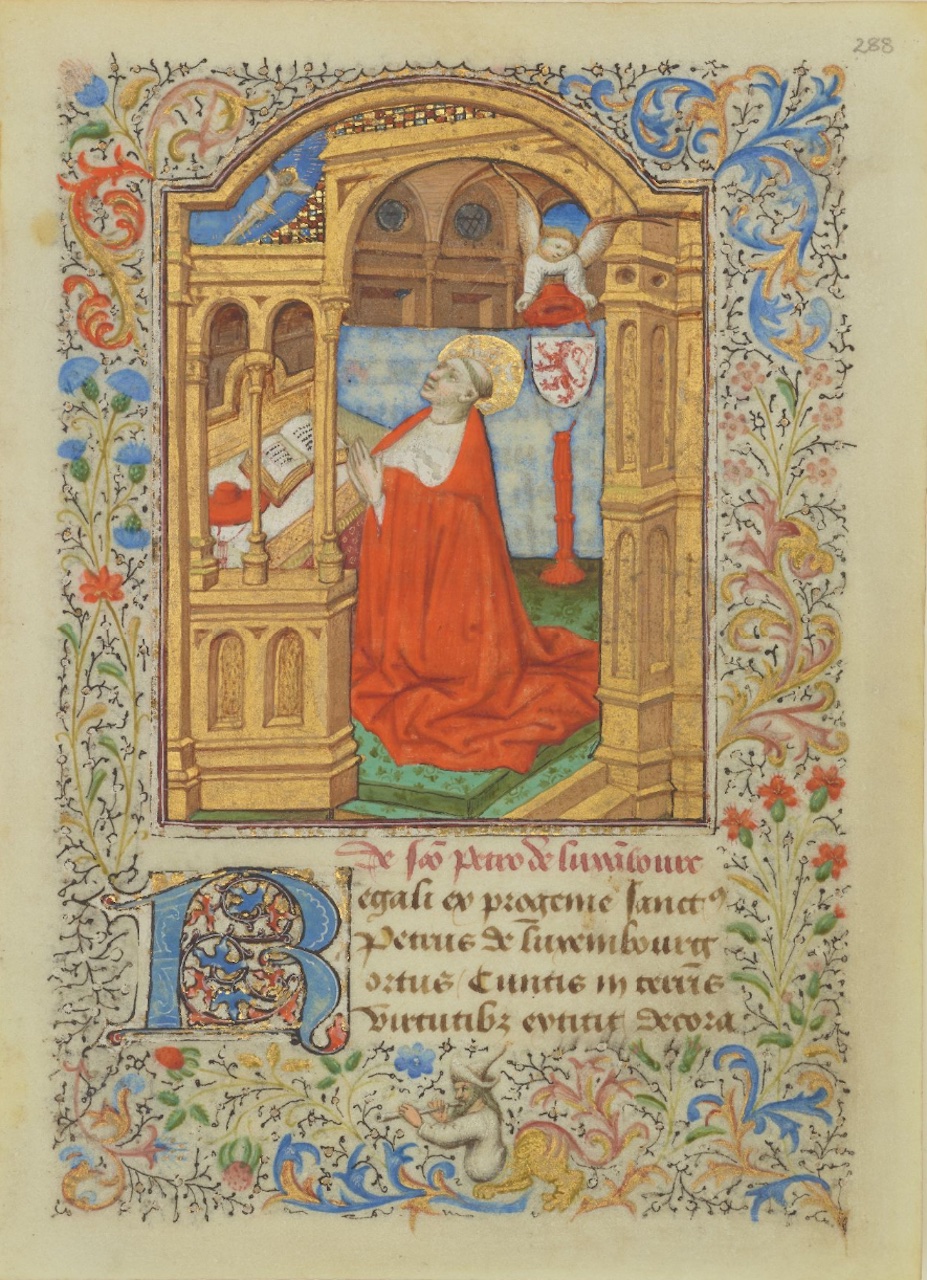 288
De sc̄o petro de luxēbourc
Regali ex progenie sanctꝰ
Petrus de luxembourg
ortus / Cuntis in terris
Virtutibꝫ extitit decora